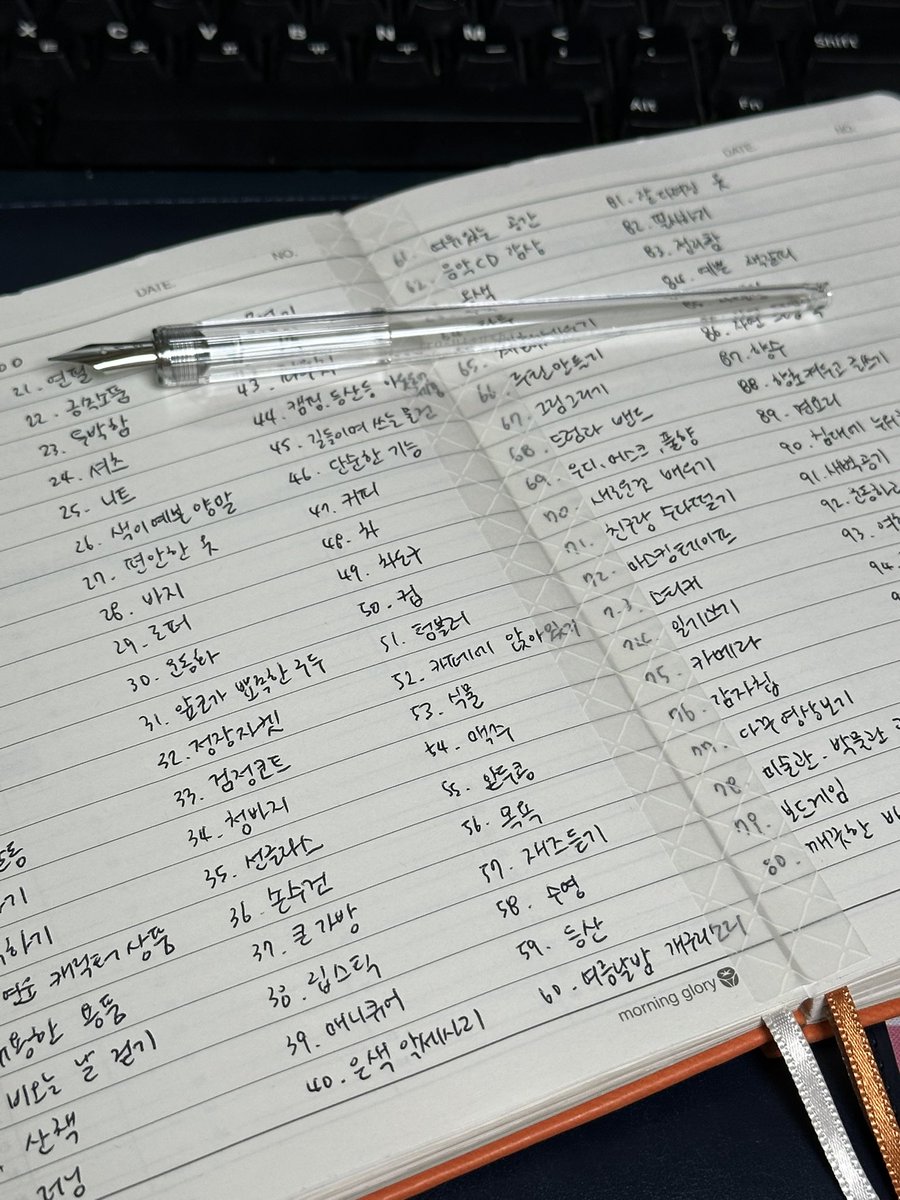 X C V B N M
Shift
Alt
Fn
DATE.
NO.
21. 연필
22. 공작소품
23. 투박함
24. 셔츠
25. 니트
26. 색이 예쁜 양말
27. 편안한 옷
28. 바지
29. 로퍼
30. 운동화
31. 앞코가 뾰족한 구두
32. 정장자켓
33. 검정코트
34. 청바지
35. 선글라스
36. 손수건
37. 큰 가방
38. 립스틱
39. 매니큐어
40. 은색 악세사리
하기
캐릭터 상품
용품
비오는 날 걷기
산책
러닝
43.
44. 캠핑, 등산 등
45. 길들이며 쓰는 물건
46. 단순한 기능
47. 커피
48. 차
49. 차도구
50. 컵
51. 텀블러
52. 카페에 앉아있기
53. 식물
54. 맥주
55. 완두콩
56. 목욕
57. 재즈듣기
58. 수영
59. 등산
60. 여름날밤 개구리소리
morning glory
DATE.
NO.
61. 여유있는 공간
62. 음악CD 감상
65.
66. 루틴 만들기
67. 그림그리기
68. 드럼과 밴드
69. 우디, 머스크, 풀향
70. 새로운것 배우기
71. 친구랑 수다떨기
72. 마스킹테이프
73. 스티커
74. 일기쓰기
75. 카메라
76. 감자칩
77. 다꾸영상보기
78. 미술관, 박물관
79. 보드게임
80. 깨끗한
81. 잘 다려진 옷
82. 필사하기
83. 정리함
84. 예쁜 색감
86. 자연
87. 향수
88. 향초 켜두고 글쓰기
89. 면요리
90. 침대에
91. 새벽공기
92.
93.
94.